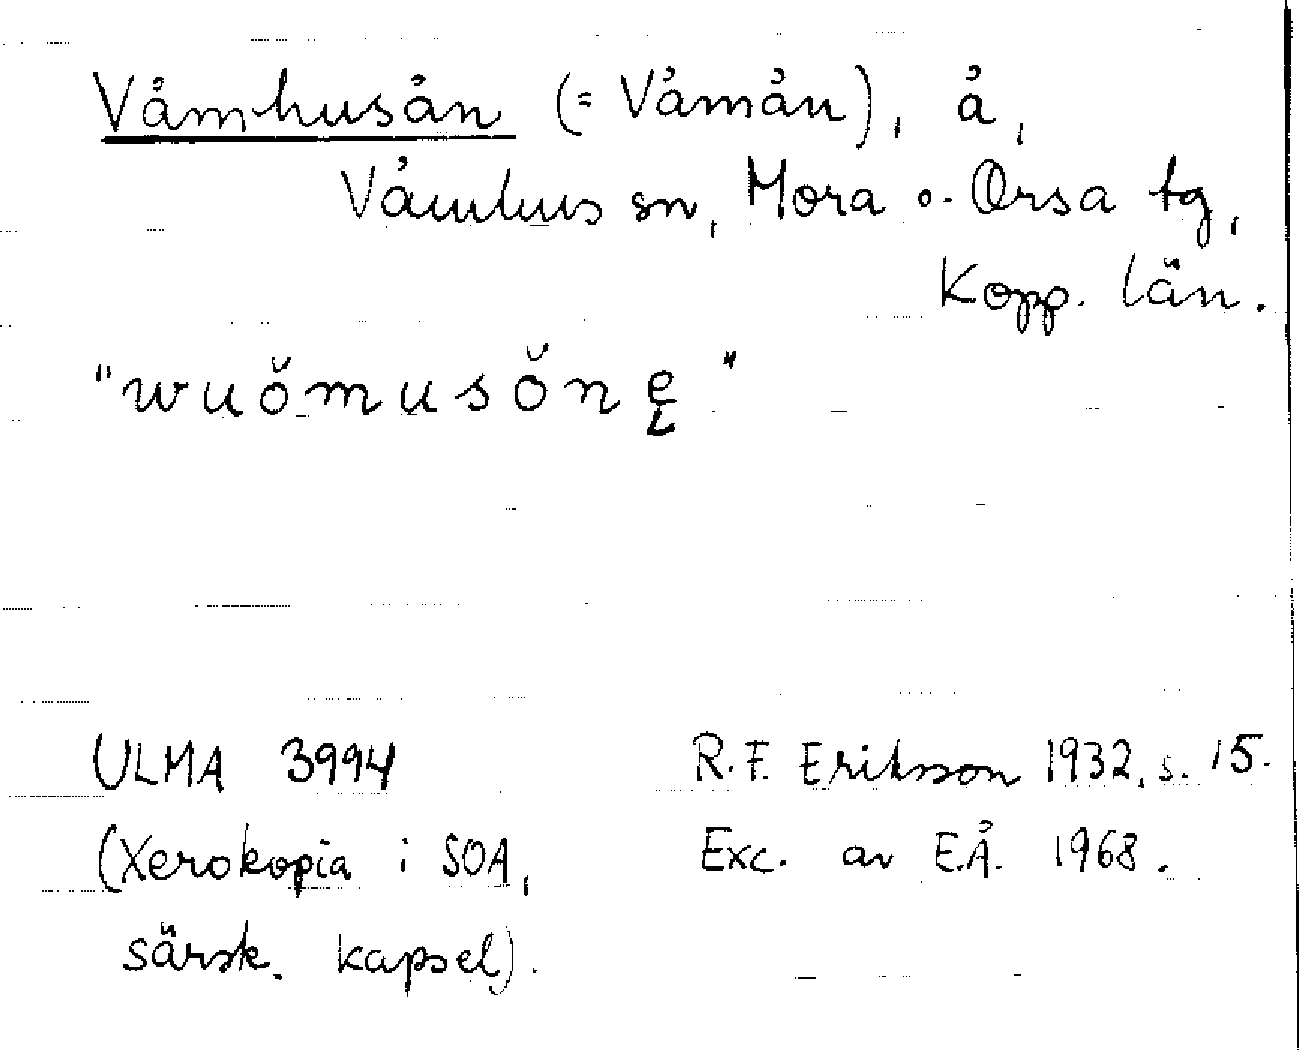 Våmhusån (= Våmån), å,
Våmhus sn, Mora o. Orsa tg,
Kopp. län.
"wuŏmusŏnę"
ULMA 3994 R.F. Eriksson 1932, s. 15.
(Xerokopia i SOA, Exc. av E.Å. 1968.
särsk. kapsel).